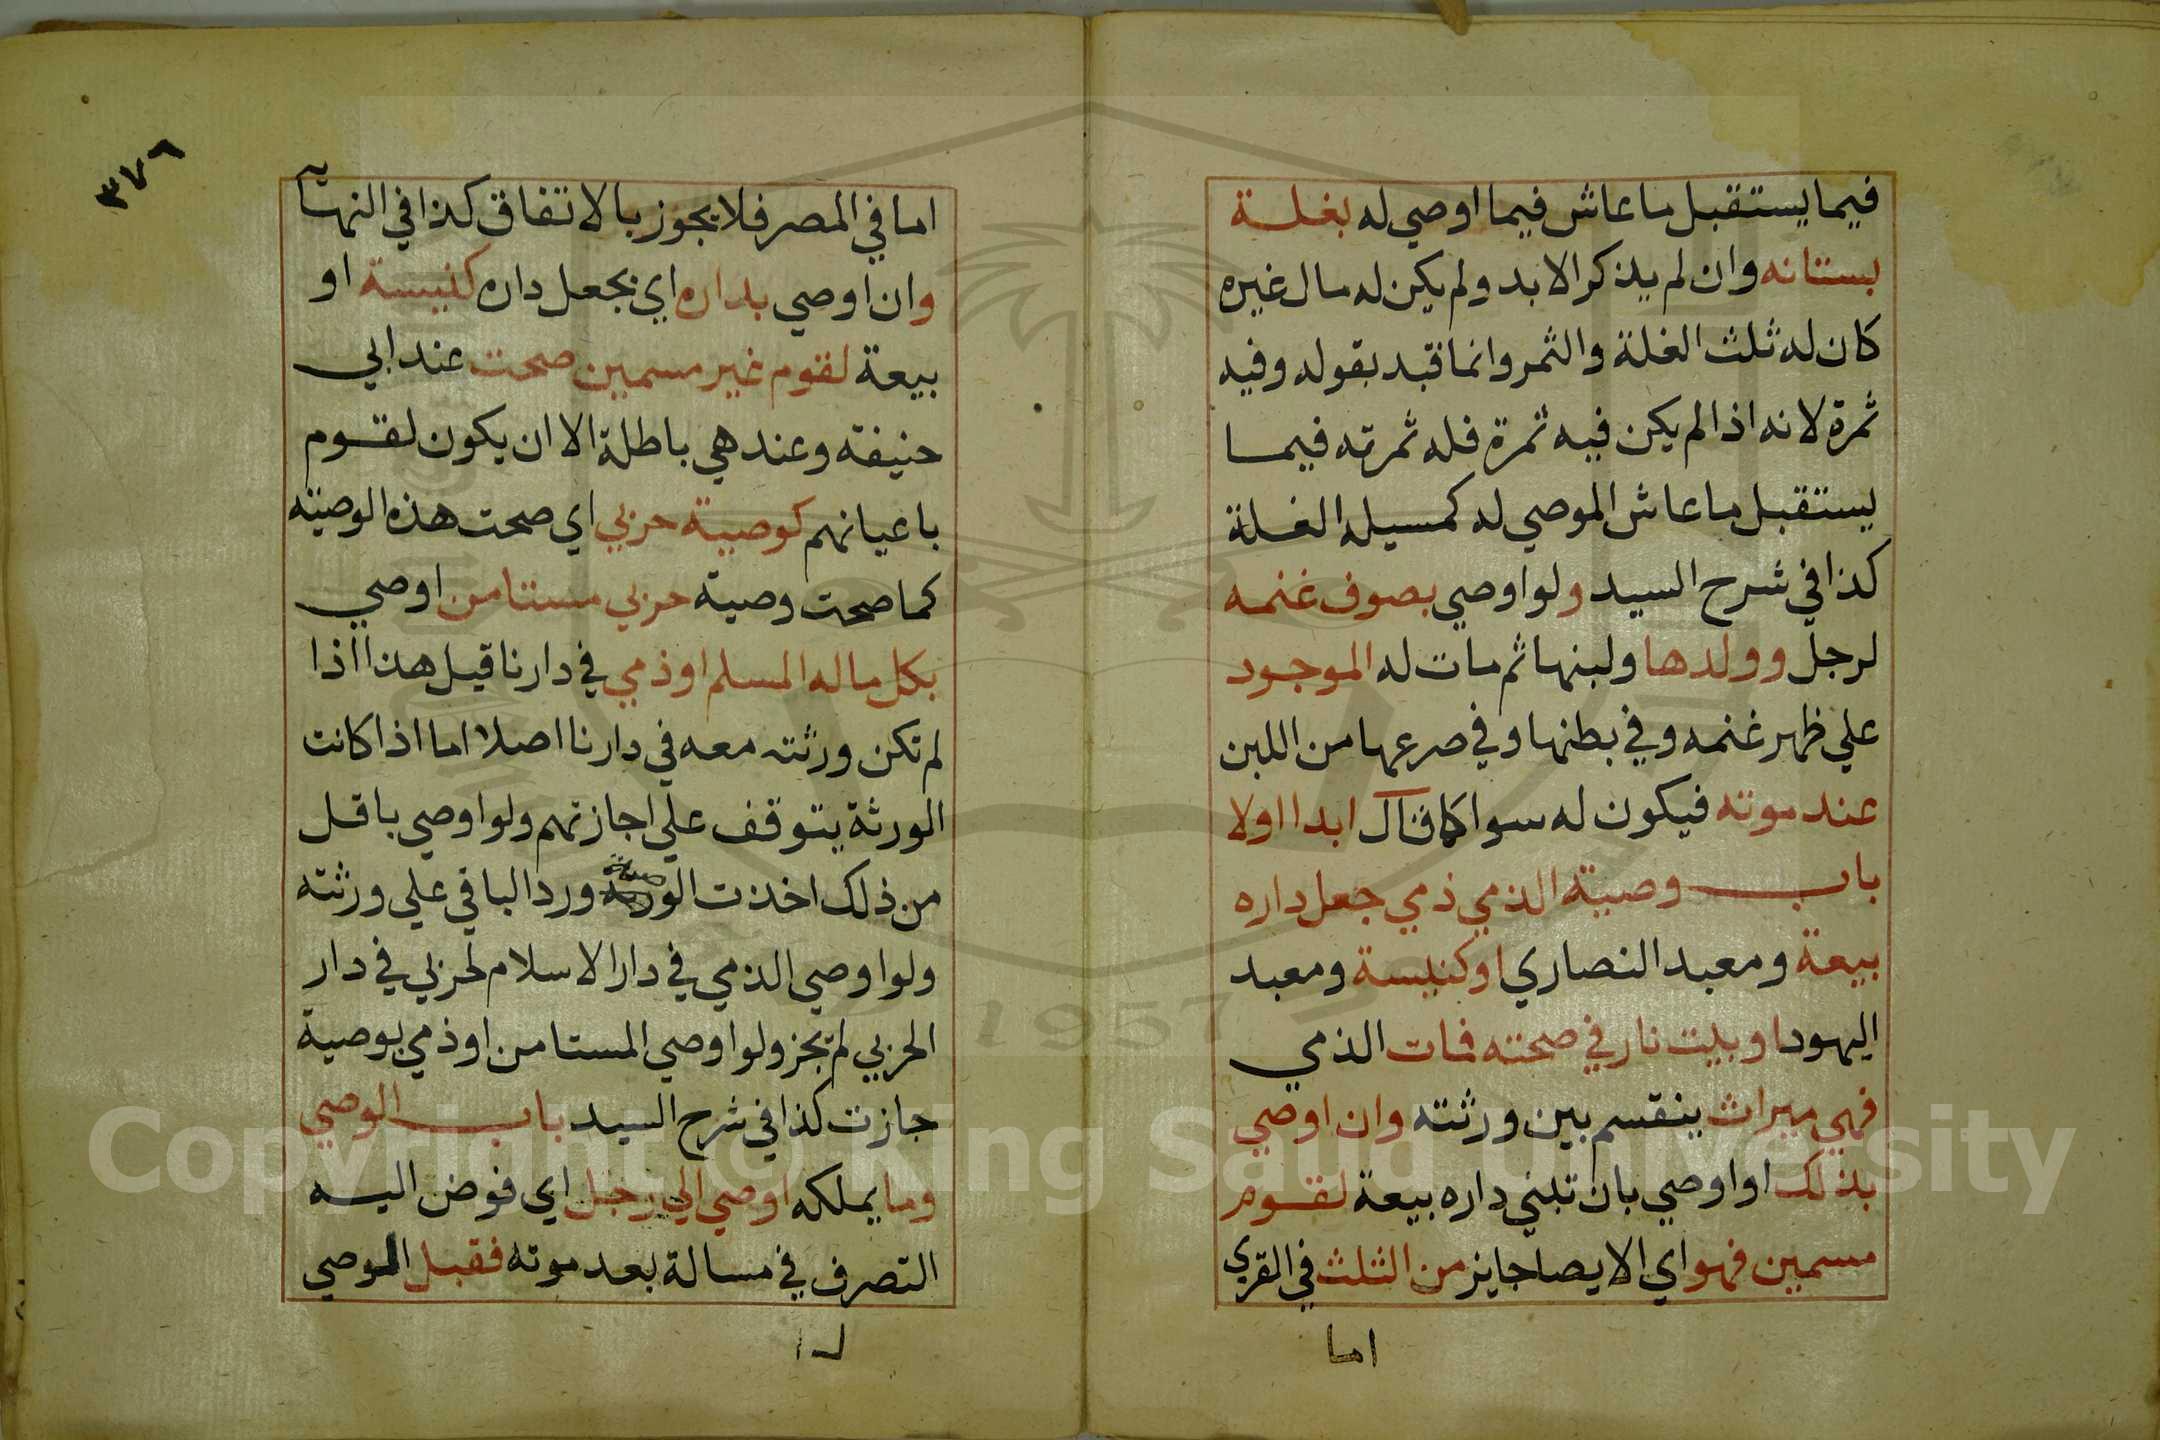 فيما يستقبل ما عاش فيما اوصي له بغلة
بستانه وان لم يذكر الابد ولم يكن له مال غيره
كان له ثلث الغلة والثمر وانما قيد بقوله وفيه
ثمرة لانه اذا لم يكن فيه ثمرة فله ثمرته فيما
يستقبل ما عاش الموصي له كمسيله الغلة
كذا في شرح السيد ولو اوصي بصوف غنمه
لرجل وولدها ولبنها ثم مات له الموجود
علي ظهر غنمه وفي بطنها وفي ضرعها من اللبن
عند موته فيكون له سوا كان قال ابدا اولا
باب وصية الذمي ذمي جعل داره
بيعة ومعبد النصاري او كنيسة ومعبد
اليهود او بيت نار في صحته فمات الذمي
فهي ميراث ينقسم بين ورثته وان اوصي
بذلك او اوصي بان تبني داره بيعة لقوم
مسمين فهو اي الايصا جايز من الثلث في القري
اما
٣٧٨
اما في المصر فلا يجوز بالاتفاق كذا في النهاية
وان اوصي بداره اي بجعل داره كنيسة او
بيعة لقوم غير مسمين صحت عند ابي
حنيفته وعند هي باطلة الا ان يكون لقوم
باعيانهم كوصية حربي اي صحت هذه الوصية
كما صحت وصية حربي مستامن اوصي
بكل ماله المسلم او ذمي في دارنا قيل هذا اذا
لم تكن ورثته معه في دارنا اصلا اما اذا كانت
الورثة يتوقف علي اجازتهم ولو اوصي باقل
من ذلك اخذت الوصية ورد الباقي علي ورثته
ولو اوصي الذمي في دار الاسلام لحربي في دار
الحربي لم تجز ولو اوصي المستامن او ذمي بوصية
جازت كذا في شرح السيد باب الوصي
وما يملكه اوصي الي رجل اي فوض اليه
التصرف في مسالة بعد موته فقبل الموصي
1957
Copyright © King Saud University